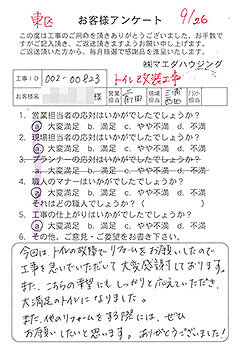 東区 お客様アンケート 9/26
この度は工事のご用命を頂きありがとうございました。お手数で
すがご記入頂き、ご返送頂きますようお願い申し上げます。
ご返送頂いた方から、毎月抽選で感謝品を進呈いたします。
㈱マエダハウジング
工事ID 002-00823 トイレ改装工事
様 営業担当 前田 現場担当
1. 営業担当者の応対はいかがでしたでしょうか?
a 大変満足 b. 満足 c. やや不満 d. 不満
2. 現場担当者の応対はいかがでしたでしょうか?
a 大変満足 b. 満足 c. やや不満 d. 不満
3. プランナーの応対はいかがでしたでしょうか?
a. 大変満足 b. 満足 c. やや不満 d. 不満
4. 職人のマナーはいかがでしたでしょうか?
a 大変満足 b. 満足 c. やや不満 d. 不満
それはどの職人でしょうか? ( )
5. 工事の仕上がりはいかがでしたでしょうか?
a 大変満足 b. 満足 c. やや不満 d. 不満
6. その他、ご意見・ご要望をお書き下さい。
今回は、トイレの故障でリフォームをお願いしたので
工事を急いでいただいて大変感謝しております。
また、こちらの希望にもしっかりと応えていただき、
大満足のトイレになりました。
また、他のリフォームをする際には、ぜひ
お願いしたいと思います。ありがとうございました!